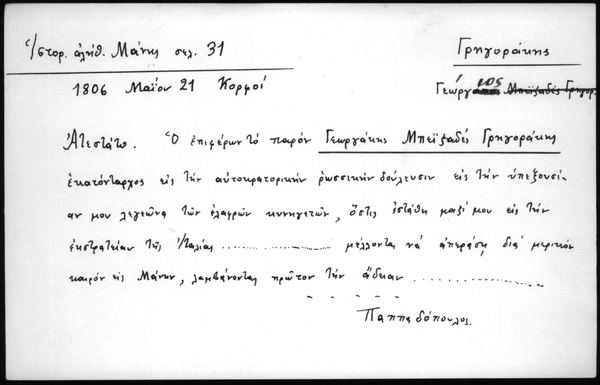 Ἱστορ. ἀλήθ. Μάνης σελ. 31
Γρηγοράκης
1806 Μαΐου 21 Κορφοί
Γεώργιος Μπεϊζαδές Γρηγορ.
Ἀτεστάτο. Ὁ ἐπιφέρων τό παρόν Γεωργάκης Μπεϊζαδές Γρηγοράκης
ἑκατόνταρχος εἰς τήν αὐτοκρατορικήν ῥωσσικήν δούλευσιν εἰς τήν ὑπεξουσί-
αν μου λεγεῶνα τῶν ἐλαφρῶν κυνηγετῶν, ὅστις ἐστάθη μαζί μου εἰς τήν
ἐκστρατείαν τῆς Ἰταλίας .................... μέλλοντας νά ἀπεράσῃ διά μερικόν
καιρόν εἰς Μάνην, λαμβάνοντας πρῶτον τήν ἄδειαν ....................
Παππαδόπουλος.